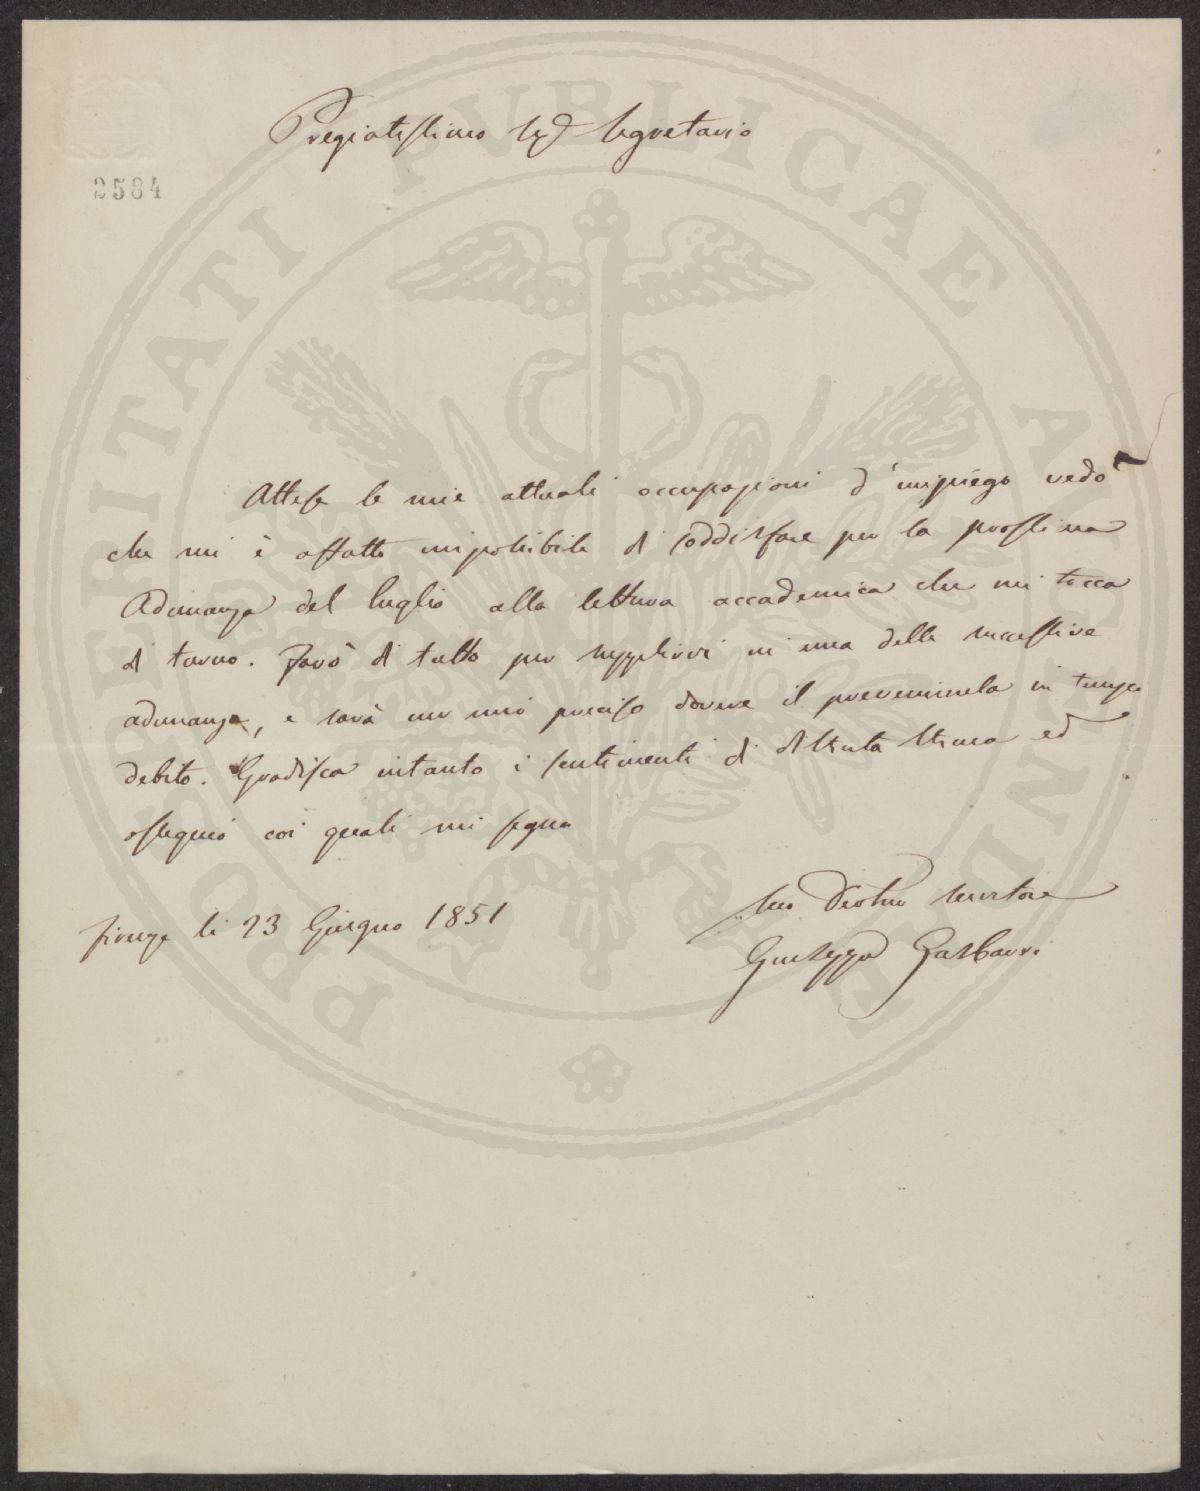 Pregiatissimo Sig.r Segretario
2584
Attese le mie attuali occupazioni d'impiego vedo
che mi è affatto impossibile di soddisfare per la prossima
Adunanza del luglio alla lettura accademica che mi tocca
di turno. Farò di tutto per supplirvi in una delle successive
adunanze, e sarà un mio preciso dovere il prevenirnela in tempo
debito. Gradisca intanto i sentimenti di distinta stima ed
ossequio coi quali mi segno
Suo Devotmo servitore
Firenze li 23 Giugno 1851
Giuseppe Gasbarri
PROSPERITATI PVBLICAE AVGENDAE